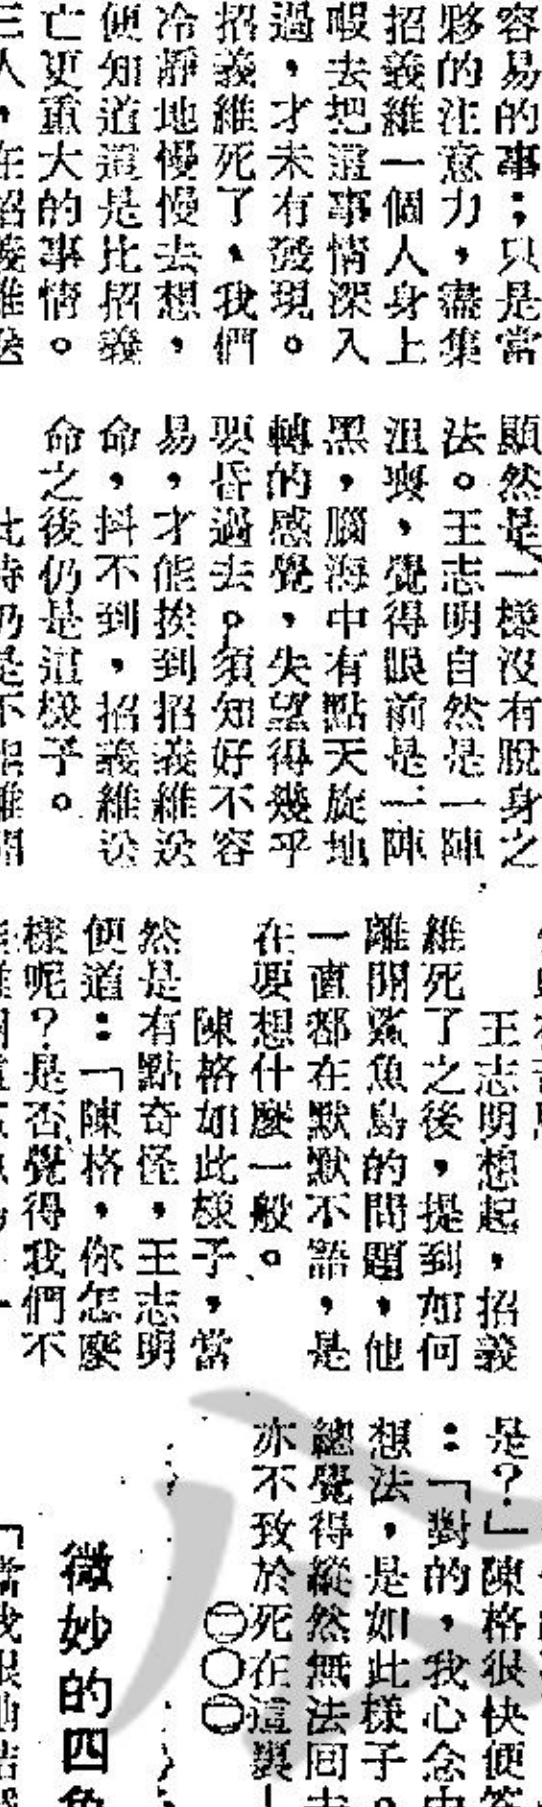 容易的事；只是當
夥的注意力，盡集
招義維一個人身上
暇去把這事情深入
過，才未有發現。
招義維死了，我們
冷靜地慢慢去想，
便知道這是比招義
亡更重大的事情。
顯然是一樣沒有脫身之
法。王志明自然是一陣
沮喪，覺得眼前是一陣
黑，腦海中有點天旋地
轉的感覺，失望得幾乎
要昏過去。須知好不容
易，才能挨到招義維送
命，抖不到，招義維送
命之後仍是這樣子。
此時仍是不能離開
王志明想起，招義
維死了之後，提到如何
離開鯊魚島的問題，他
一直都在默默不語，是
在要想什麼一般。
陳格如此樣子，當
然是有點奇怪，王志明
便道：「陳格，你怎麼
樣呢？是否覺得我們不
是？」陳格很快便答
：「對的，我心念中
想法，是如此樣子。
總覺得縱然無法回去
亦不致於死在這裏
二〇二
微妙的四角